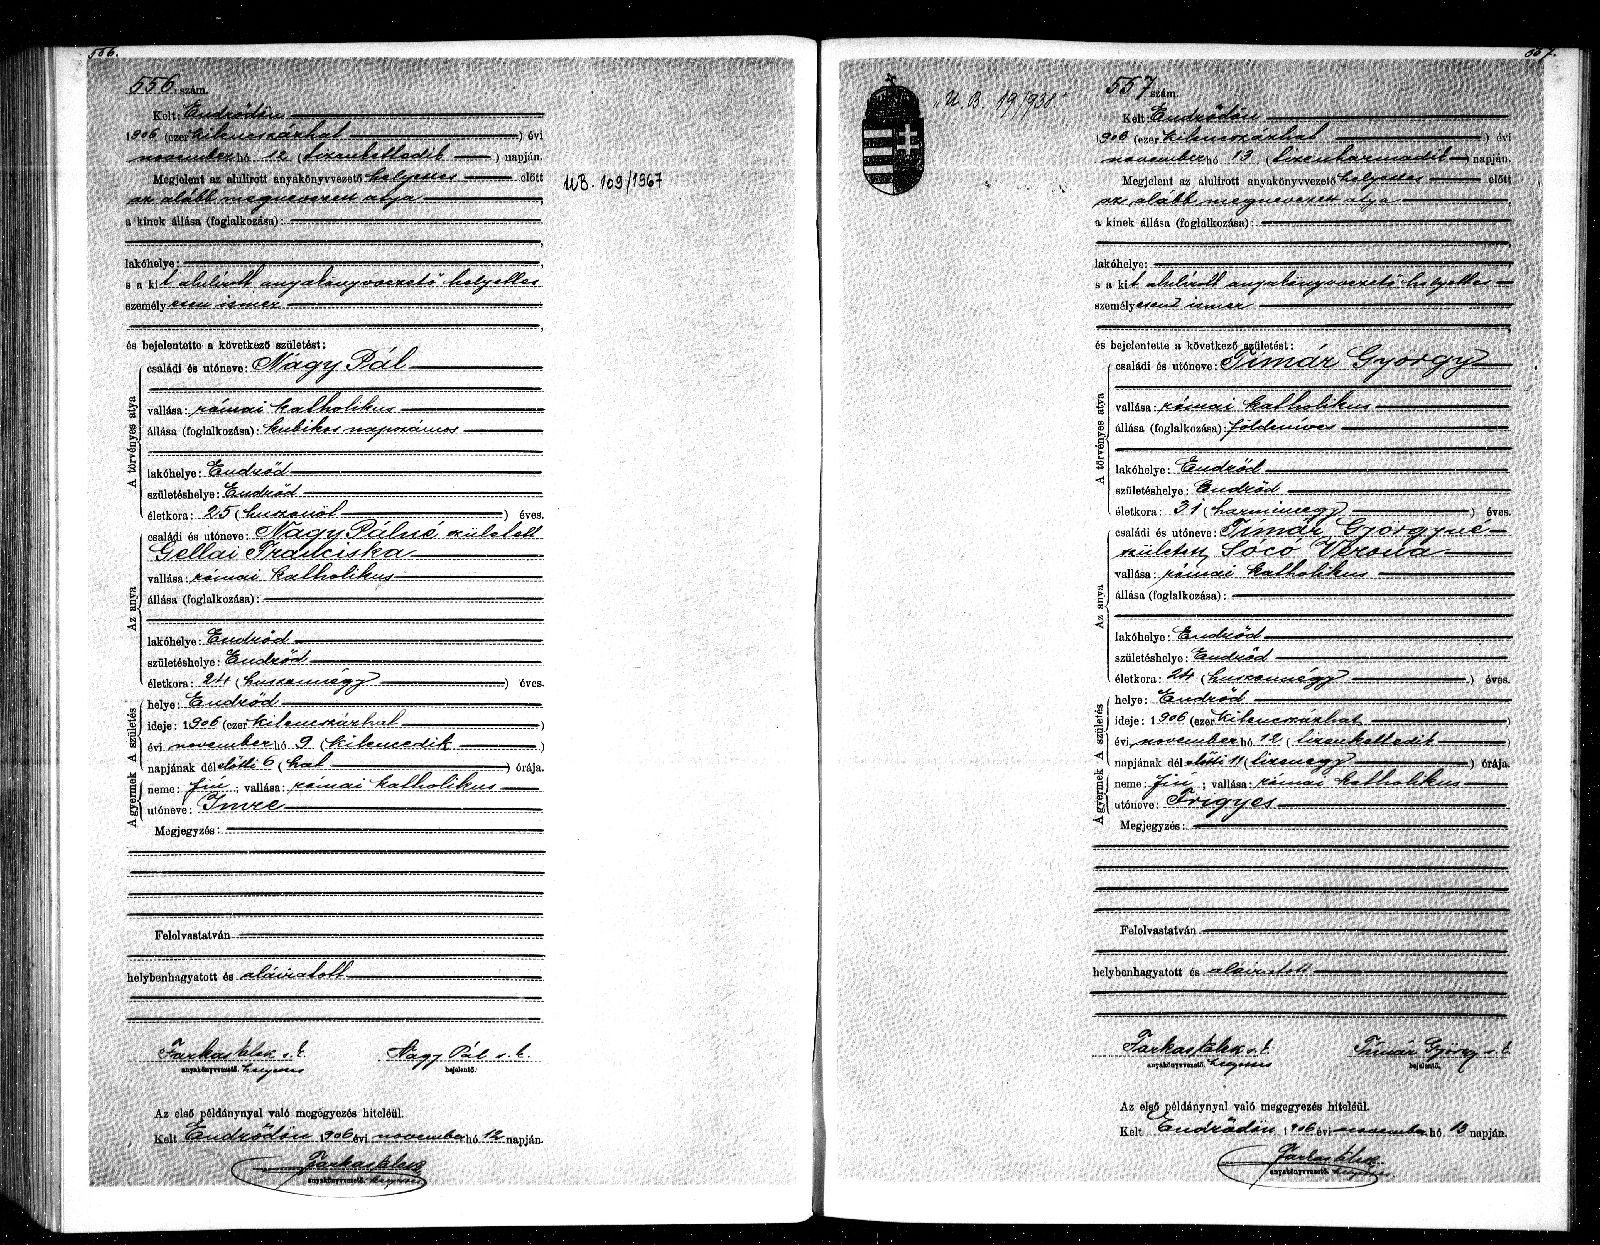 556.
556. szám.
Kelt: Endrődön
1906 (ezer kilencszázhat) évi
november hó 12 (tizenkettedik) napján.
Megjelent az alulirott anyakönyvvezető helyettes előtt
az alább megnevezett atya
a kinek állása (foglalkozása):
lakóhelye:
s a kit alulirott anyakönyvvezető helyettes
személyesen ismer
és bejelentette a következő születést:
A törvényes atya
családi és utóneve: Nagy Pál
vallása: római katholikus
állása (foglalkozása): kubikos napszámos
lakóhelye: Endrőd
születéshelye: Endrőd
életkora: 25 (huszonöt) éves.
Az anya
családi és utóneve: Nagy Pálné született
Gellai Franciska
vallása: római katholikus
állása (foglalkozása):
lakóhelye: Endrőd
születéshelye: Endrőd
életkora: 24 (huszonnégy) éves.
A születés
helye: Endrőd
ideje: 1906 (ezer kilencszázhat)
évi november hó 9 (kilencedik)
napjának délelőtti 6 (hat) órája.
A gyermek
neme: fiú; vallása: római katholikus
utóneve: Imre
Megjegyzés:
Felolvastatván
helybenhagyatott és aláiratott
Farkas Elek s. k.
anyakönyvvezető. helyettes
Nagy Pál s. k.
bejelentő.
Az első példánynyal való megegyezés hiteléül.
Kelt Endrődön 1906 évi november hó 12 napján.
Farkas Elek
anyakönyvvezető. helyettes
UB. 109/1967
557.
U. B. 19/931
557 szám.
Kelt: Endrődön
1906 (ezer kilencszázhat) évi
november hó 13 (tizenharmadik) napján.
Megjelent az alulirott anyakönyvvezető helyettes előtt
az alább megnevezett atya
a kinek állása (foglalkozása):
lakóhelye:
s a kit alulirott anyakönyvvezető helyettes
személyesen ismer
és bejelentette a következő születést:
A törvényes atya
családi és utóneve: Tímár György
vallása: római katholikus
állása (foglalkozása): földmives
lakóhelye: Endrőd
születéshelye: Endrőd
életkora: 31 (harminegy) éves.
Az anya
családi és utóneve: Tímár Györgyné
született Sóczó Verona
vallása: római katholikus
állása (foglalkozása):
lakóhelye: Endrőd
születéshelye: Endrőd
életkora: 24 (huszonnégy) éves.
A születés
helye: Endrőd
ideje: 1906 (ezer kilencszázhat)
évi november hó 12 (tizenkettedik)
napjának délelőtti 11 (tizenegy) órája.
A gyermek
neme: fiú; vallása: római katholikus
utóneve: Frigyes
Megjegyzés:
Felolvastatván
helybenhagyatott és aláiratott
Farkas Elek s. k.
anyakönyvvezető. helyettes
Tímár György s. k.
bejelentő.
Az első példánynyal való megegyezés hiteléül.
Kelt Endrődön 1906 évi november hó 13 napján.
Farkas Elek
anyakönyvvezető. helyettes